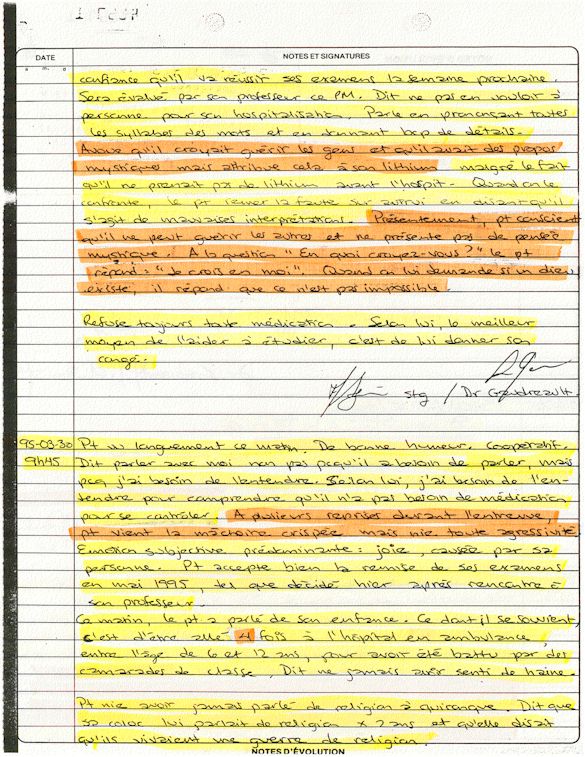 DATE
NOTES ET SIGNATURES
confiance qu'il va réussir ses examens la semaine prochaine.
Sera évalué par son professeur ce PM. Dit ne pas en vouloir à
personne pour son hospitalisation. Parle en prononçant toutes
les syllabes des mots et en donnant bcp de détails.
Avoue qu'il croyait guérir les gens et qu'il avait des propos
mystiques mais attribue cela à son lithium malgré le fait
qu'il ne prenait pas de lithium avant l'hospit. Quand on le
confronte, le pt remet la faute sur autrui en disant qu'il
s'agit de mauvaises interprétations. Présentement, pt conscient
qu'il ne peut guérir les autres et ne présente pas de pensée
mystique. À la question "En quoi croyez-vous?" le pt
répond: "Je crois en moi". Quand on lui demande si un dieu
existe, il répond que ce n'est pas impossible.
Refuse toujours toute médication. Selon lui, le meilleur
moyen de l'aider à étudier, c'est de lui donner son
congé.
stg / Dr Gaudreault
95-03-30 Pt vu longuement ce matin. De bonne humeur. Coopératif.
9h45 Dit parler avec moi non pas pcqu'il a besoin de parler, mais
pcq j'ai besoin de l'entendre. Selon lui, j'ai besoin de l'en-
tendre pour comprendre qu'il n'a pas besoin de médication
pour se contrôler. À plusieurs reprises durant l'entrevue,
pt vient la mâchoire crispée mais nie toute agressivité.
Emotion subjective prédominante: joie, causée par sa
personne. Pt accepte bien la remise de ses examens
en mai 1995, tel que décidé hier après rencontre à
son professeur.
Ce matin, le pt a parlé de son enfance. Ce dont il se souvient,
c'est d'être allé 4 fois à l'hôpital en ambulance,
entre l'âge de 6 et 12 ans, pour avoir été battu par des
camarades de classe. Dit ne jamais avoir senti de haine.
Pt nie avoir jamais parlé de religion à quiconque. Dit que
sa coloc lui parlait de religion x 2 ans et qu'elle disait
qu'ils vivaient une guerre de religion.
NOTES D'ÉVOLUTION